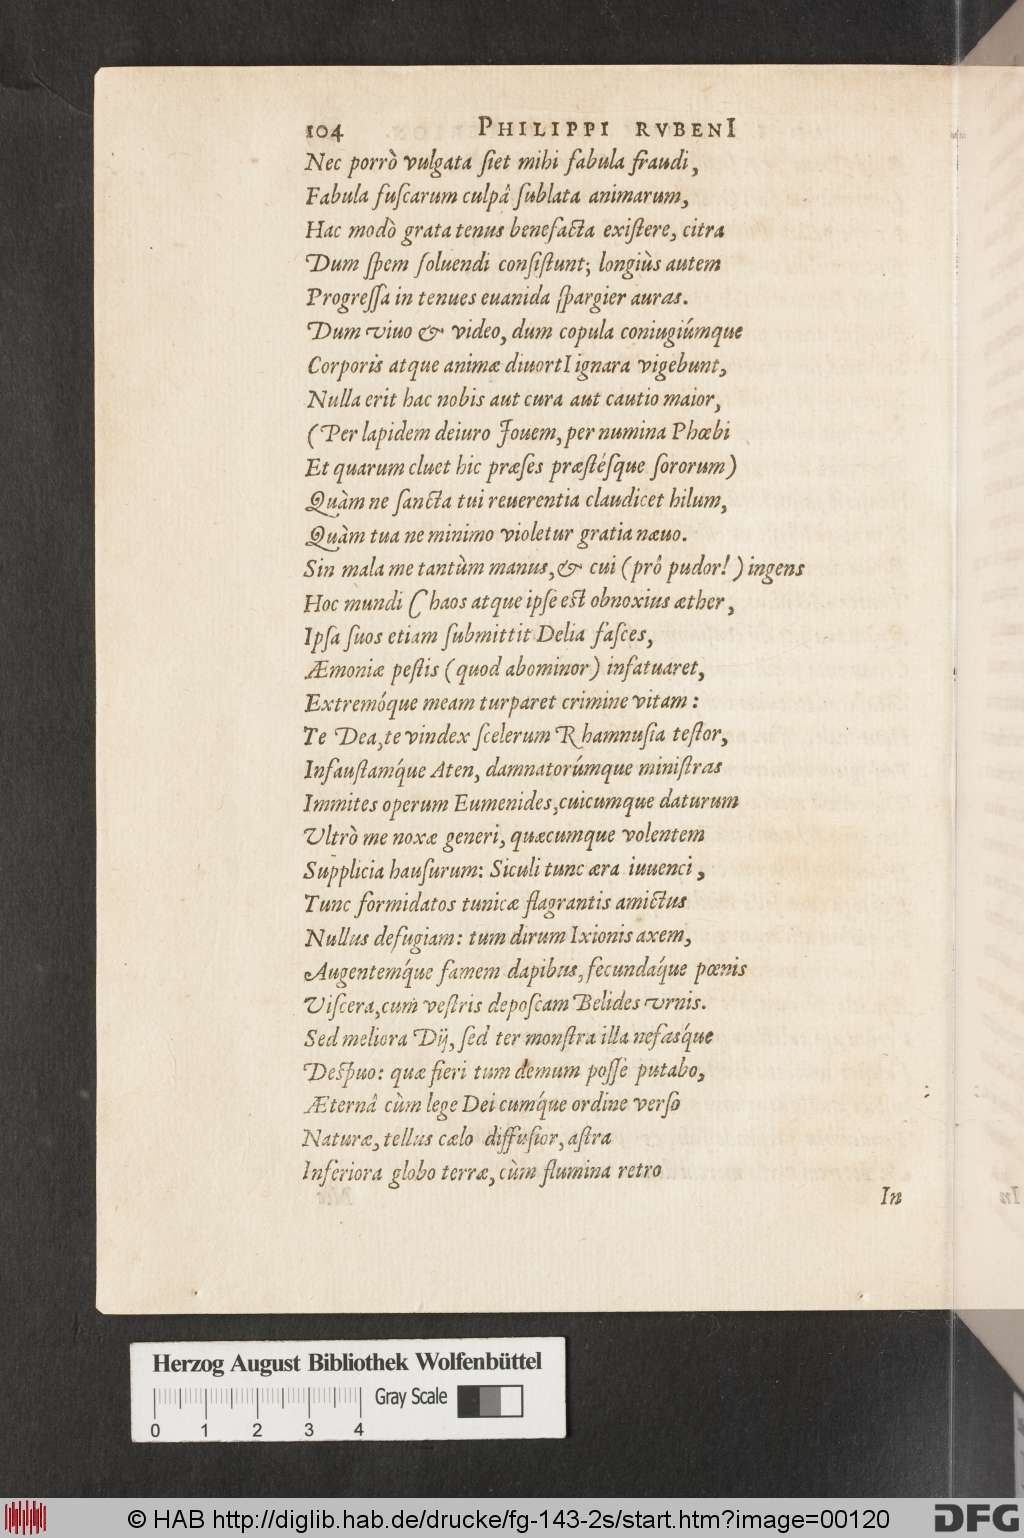 104 PHILIPPI RVBENI
Nec porrò vulgata fiet mihi fabula fraudi,
Fabula fuscarum culpâ sublata animarum,
Hac modò grata tenus benefacta existere, citra
Dum spem soluendi consistunt; longiùs autem
Progressa in tenues euanida spargier auras.
Dum viuo & video, dum copula coniugiúmque
Corporis atque animæ diuortI ignara vigebunt,
Nulla erit hac nobis aut cura aut cautio maior,
(Per lapidem deiuro Jouem, per numina Phœbi
Et quarum cluet hic præses præstésque sororum)
Quàm ne sancta tui reuerentia claudicet hilum,
Quàm tua ne minimo violetur gratia næuo.
Sin mala me tantùm manus, & cui (prô pudor!) ingens
Hoc mundi Chaos atque ipse est obnoxius æther,
Ipsa suos etiam submittit Delia fasces,
Æmoniæ pestis (quod abominor) infatuaret,
Extremóque meam turparet crimine vitam:
Te Dea, te vindex scelerum Rhamnusia testor,
Infaustamq́ue Aten, damnatorúmque ministras
Immites operum Eumenides, cuicumque daturum
Vltrò me noxæ generi, quæcumque volentem
Supplicia hausurum: Siculi tunc æra iuuenci,
Tunc formidatos tunicæ flagrantis amictus
Nullus defugiam: tum dirum Ixionis axem,
Augentemq́ue famem dapibus, fecundaq́ue pœnis
Viscera, cum vestris deposcam Belides vrnis.
Sed meliora Dij, sed ter monstra illa nefasq́ue
Despuo: quæ fieri tum demum posse putabo,
Æternâ cùm lege Dei cumq́ue ordine verso
Naturæ, tellus cælo diffusior, astra
Inferiora globo terræ, cùm flumina retro
In
Herzog August Bibliothek Wolfenbüttel
Gray Scale
0 1 2 3 4
© HAB http://diglib.hab.de/drucke/fg-143-2s/start.htm?image=00120
DFG